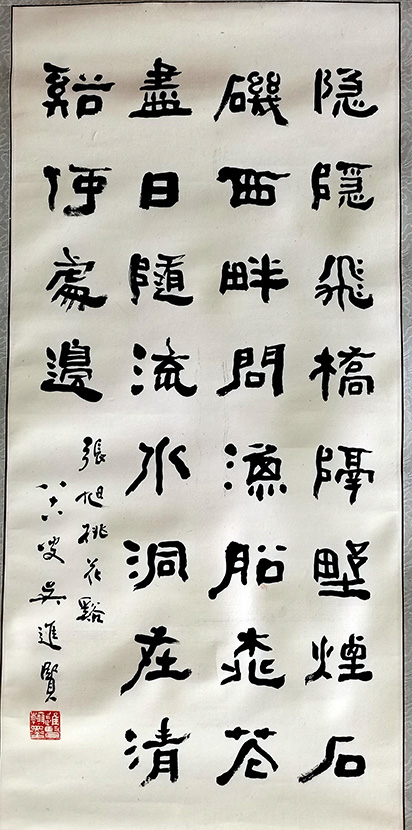 隐隱飛橋隔野煙石
磯西畔問漁船桃花
盡日隨流水洞在清
谿何處邊
張旭桃花谿
八六叟吳進賢